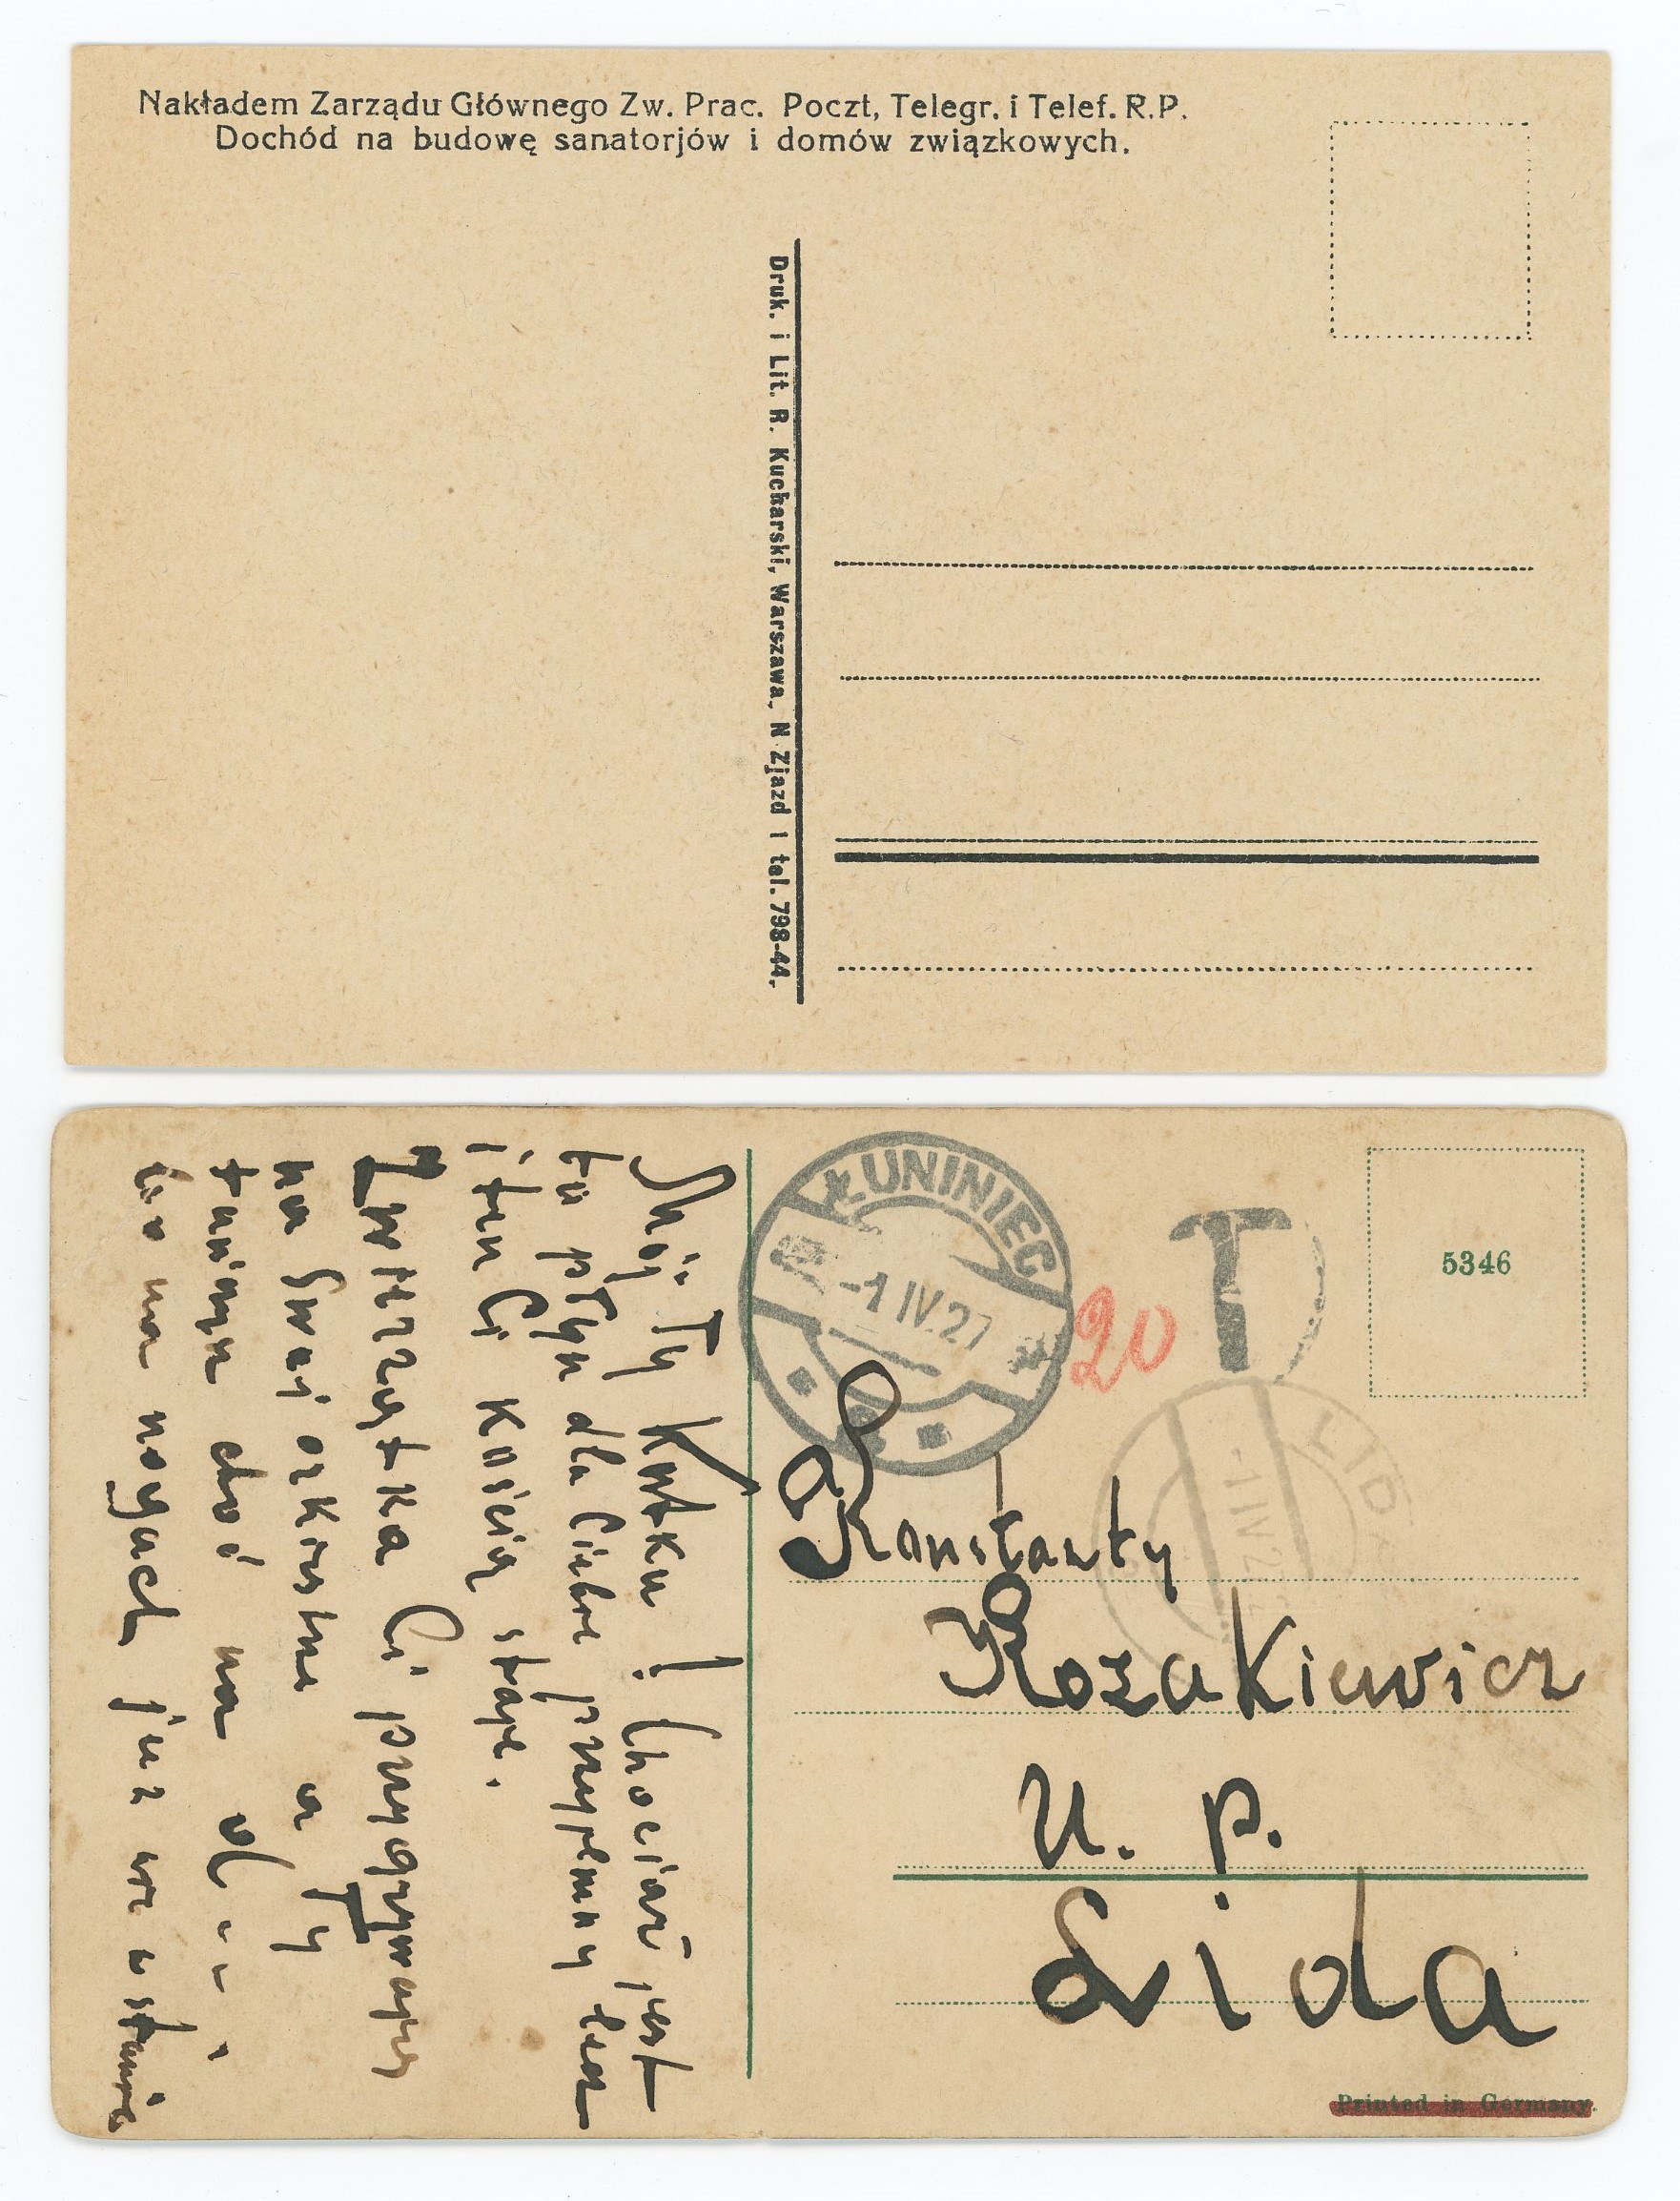 Nakładem Zarządu Głównego Zw. Prac. Poczt, Telegr. i Telef. R.P.
Dochód na budowę sanatorjów i domów związkowych.
Druk. i Lit. R. Kucharski, Warszawa, N Zjazd 1 tel. 798-44.
Mój Ty Kostku! Chociaż jest
tu płyn dla Ciebie przyjemny lecz
i ten Ci kością staje.
Ci przygrywa
na Swej a Ty
choć na
na nogach już nie w stanie
ŁUNINIEC
-1 IV.27
20
T
5346
LIDA
Konstanty
Kozakiewicz
U. p.
Lida
Printed in Germany.